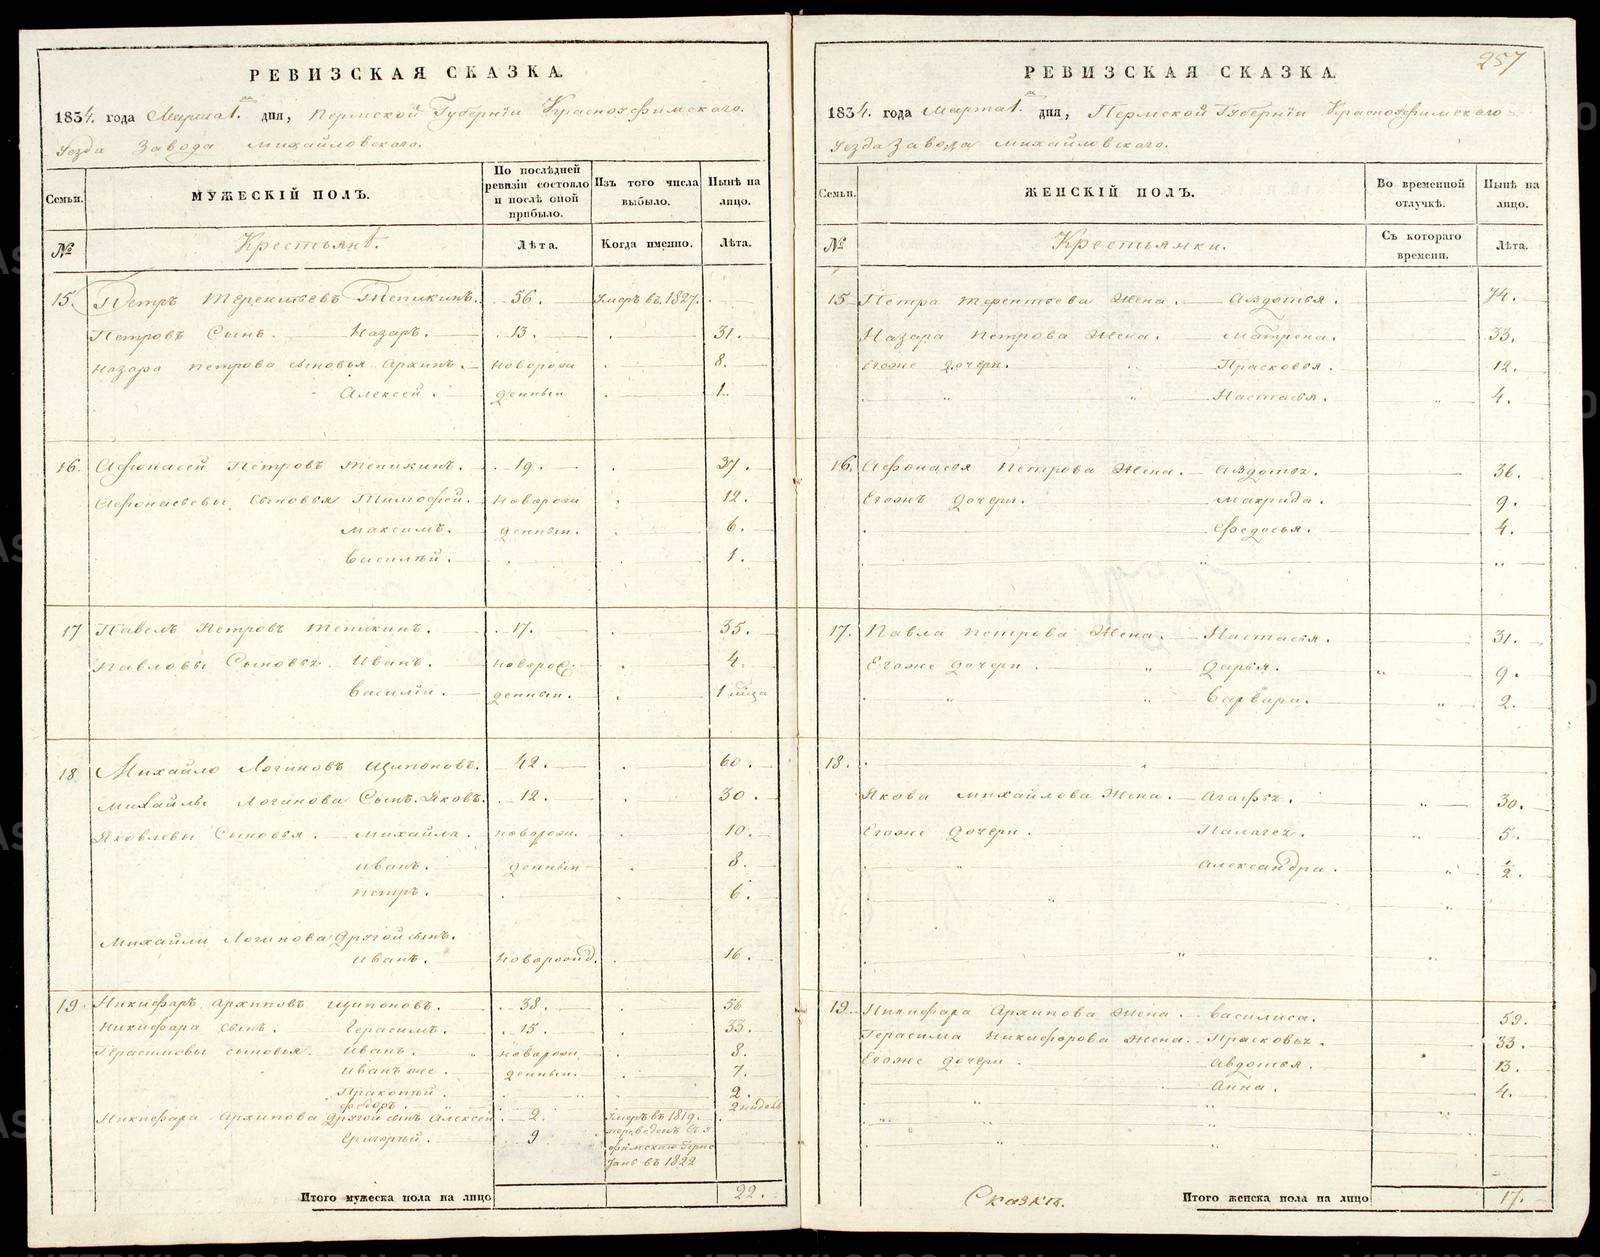 РЕВИЗСКАЯ СКАЗКА.
1834. года Марта 1. дня, Пермской Губернiи Красноуфимского.
Уезда Завода Михайловского.
Семьи.
МУЖЕСКIЙ ПОЛЪ.
По послѣдней ревизiи состояло и послѣ оной прибыло.
Изъ того числа выбыло.
Нынѣ на лицо.
№
Крестьянъ.
Лѣта.
Когда именно.
Лѣта.
15. Петръ Терентьевъ Тепикинъ. 56. Умеръ въ 1827.
Петровъ Сынъ. Назаръ. 13. 31.
Назара Петрова сыновья Архипъ. новорож 8.
Алексей. денныи 1.
16. Афонасей Петровъ Тепикинъ. 19. 37.
Афонасьевы Сыновья Тимофей. новорож 12.
Максимъ. денныи. 6.
Василѣй. 1.
17 Павелъ Петровъ Тепикинъ. 17. 35.
Павловы Сыновья Иванъ. новорож. 4.
Василiи. денныи. 1
18 Михайло Логиновъ Щипоновъ. 42. 60.
Михайлы Логинова Сынъ. Яковъ. 12. 30.
Яковлевы Сыновья. Михайла. новорож. 10.
Иванъ. денныи 8.
Петръ. 6.
Михайли Логинова Другой сынъ.
Иванъ. новорожд. 16.
19. Никифаръ Архиповъ Щипоновъ. 38. 56
Никифара сынъ. Герасимъ. 15. 33.
Герасимовы сыновья. Иванъ. новорож. 8.
Иванъ же. денныи. 7.
Пракопѣй. 2.
Федоръ. 2 нидели
Никифара Архипова Другой сынъ Алексей 2. Умеръ въ 1819.
Григорѣй. 9 переведенъ въ
въ 1822
Итого мужеска пола на лицо 22.
257
РЕВИЗСКАЯ СКАЗКА.
1834. года Марта 1. дня, Пермской Губернiи Красноуфимского
Уезда Завода Михайловского.
Семьи.
ЖЕНСКIЙ ПОЛЪ.
Во временной отлучкѣ.
Нынѣ на лицо.
№
Крестьянки.
Съ котораго времени.
Лѣта.
15 Петра Терентьева Жена. Авдотья. 74.
Назара Петрова Жена. Матрена. 33.
Егоже дочери. Прасковья. 12.
Настасья. 4.
16. Афонасья Петрова Жена. Авдотья. 36.
Егожъ дочери. Макрида. 9.
Федосья. 4.
17. Павла Петрова Жена. Настасья. 31.
Егоже дочери. Дарья. 9.
Варвара. 2.
18.
Якова Михайлова Жена. Агафья. 30.
Егоже дочери. Палагея. 5.
Александра. 1/2.
19. Никифара Архипова Жена. Василиса. 59.
Герасима Никифорова Жена. Прасковья. 33.
Егоже дочери. Авдотья. 13.
Анна. 4.
Сказкъ.
Итого женска пола на лицо 17.